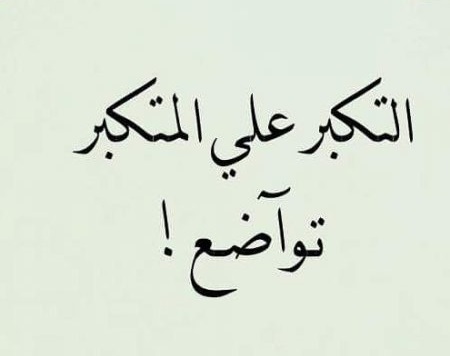 التكبر علي المتكبر
توآضع !